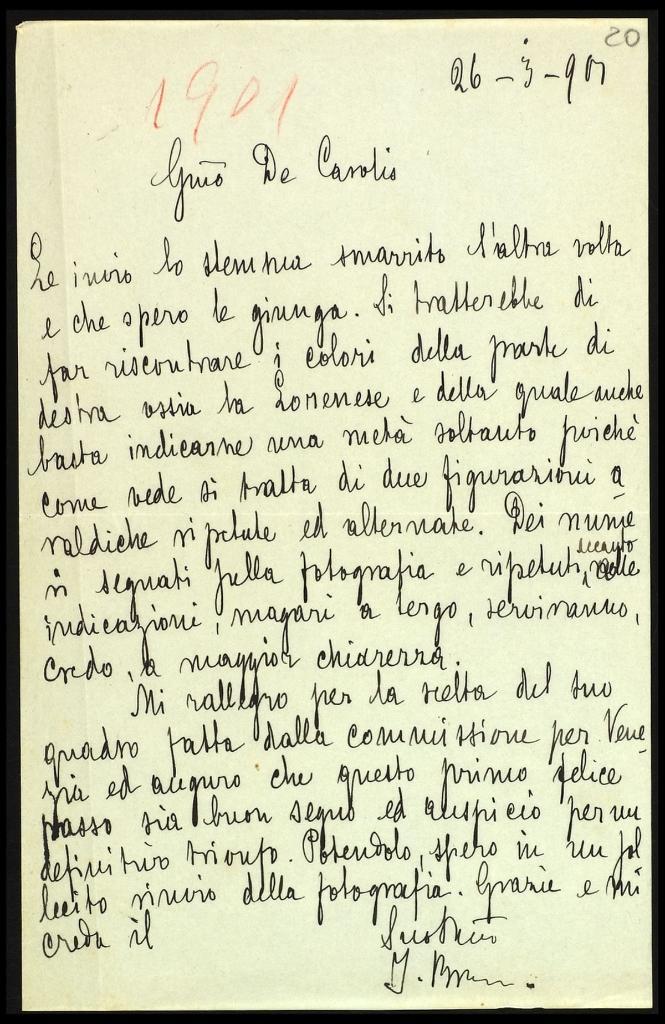 20
26 – 3 – 901
1901
Gmo De Carolis
Le invio lo stemma smarrito l'altra volta
e che spero le giunga. Si tratterebbe di
far riscontrare i colori della parte di
destra ossia la Lorenese e della quale anche
basta indicarne una metà soltanto poichè
come vede si tratta di due figurazioni a
raldiche ripetute ed alternate. Dei nume
ri segnati sulla fotografia e ripetuti, accanto alle
indicazioni, magari a tergo, serviranno,
credo, a maggior chiarezza.
Mi rallegro per la scelta del suo
quadro fatta dalla commissione per Vene
zia ed auguro che questo primo felice
passo sia buon segno ed auspicio per un
definitivo trionfo. Potendolo, spero in un sol
lecito rinvio della fotografia. Grazie e mi
creda il
Suo